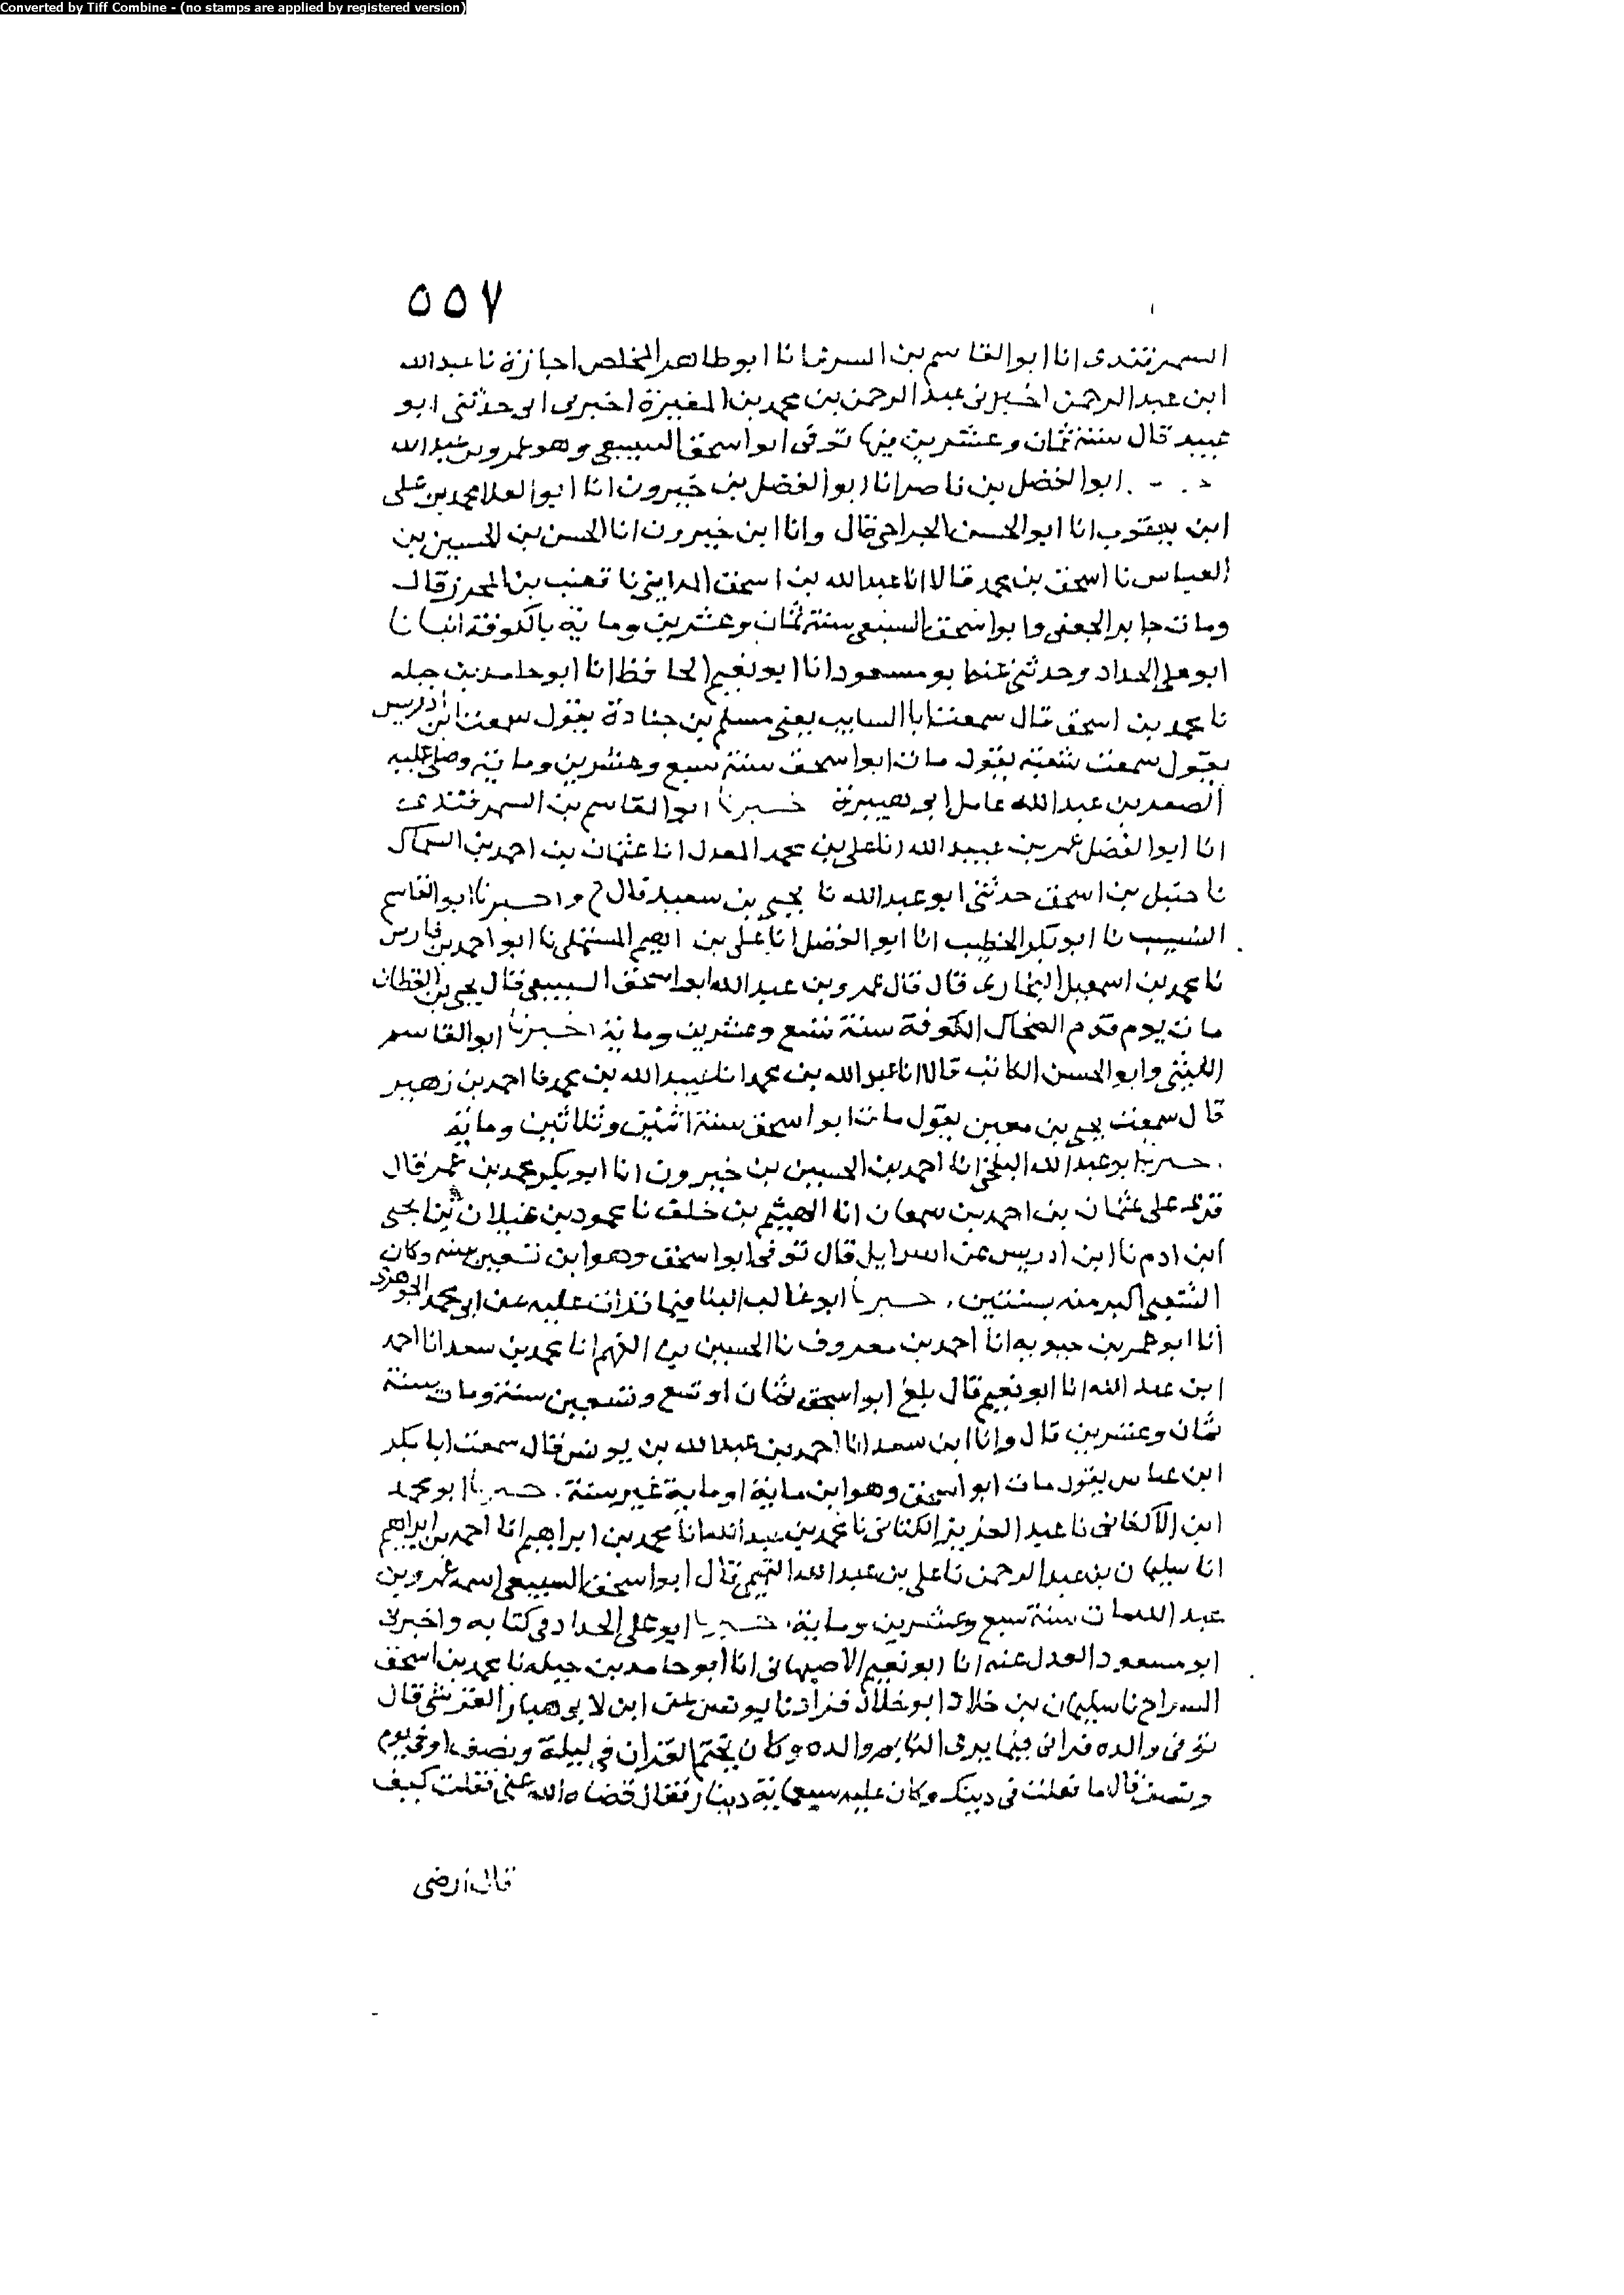 Converted by Tiff Combine - (no stamps are applied by registered version)
٥٥٧
السمرقندى انا ابو القاسم بن البسرى انا ابو طاهر المخلص اجازة نا عبد الله
ابن عبد الرحمن اخبرنى عبد الرحمن بن محمد بن المغيرة اخبرنى ابى حدثنى ابو
عبيد قال سنة ثمان وعشرين فيها توفى ابو اسحق السبيعى وهو عمرو بن عبد الله
ابو الفضل بن ناصر انا ابو الفضل بن خيرون انا ابو العلا محمد بن على
ابن يعقوب انا ابو الحسن الجراحى قال وانا ابن خيرون انا الحسن بن الحسين بن
العباس نا اسحق بن محمد قالا انا عبد الله بن اسحق المداينى نا قعنب بن المحرز قال
ومات جابر الجعفى وابو اسحق السبيعى سنة ثمان وعشرين وماية بالكوفة انبانا
ابو على الحداد وحدثنى عنه ابو مسعود انا ابو نعيم الحافظ انا ابو حامد بن جبله
نا محمد بن اسحق قال سمعت ابا السايب يعنى مسلم بن جنادة يقول سمعت ابن ادريس
يقول سمعت شعبة يقول مات ابو اسحق سنة سبع وعشرين وماية وصلى عليه
الصعد بن عبد الله عامل ابى هبيرة خبرنا ابو القاسم بن السمرقندى
انا ابو الفضل عمر بن عبيد الله انا على بن محمد المعدل انا عثمان بن احمد بن السماك
نا حنبل بن اسحق حدثنى ابو عبد الله نا يحيى بن سعيد قال ح واخبرنا ابو القاسم
النسيب نا ابو بكر الخطيب انا ابو الفضل انا على بن ابراهيم المستملى نا ابو احمد بن فارس
نا محمد بن اسمعيل البخارى قال قال عمرو بن عبد الله ابو اسحق السبيعى قال يحيى بن القطان
مات يوم قدم الضحاك الكوفة سنة تسع وعشرين وماية اخبرنا ابو القاسم
الليثى وابو الحسن الكاتب قالا انا عبد الله بن محمد انا عبيد الله بن محمد نا احمد بن زهير
قال سمعت يحيى بن معين يقول مات ابو اسحق سنة اثنين وثلاثين وماية
خبرنا ابو عبد الله البلخى انا احمد بن الحسين بن خيرون انا ابو بكر محمد بن عمر قال
قرئ على عثمان بن احمد بن سمعان انا الهيثم بن خلف نا محمود بن غيلان ثنا يحيى
ابن ادم نا ابن ادريس عن اسرايل قال توفى ابو اسحق وهو ابن تسعين سنة وكان
الشعبى اكبر منه بسنتين . خبرنا ابو غالب البنا فيما قرات عليه عن ابى محمد الجوهرى
انا ابو عمر بن حيويه انا احمد بن معروف نا الحسين بن الفهم نا محمد بن سعد انا احمد
ابن عبد الله انا ابو نعيم قال بلغ ابو اسحق ثمان او تسع وتسعين سنة ومات سنة
ثمان وعشرين قال وانا ابن سعد انا احمد بن عبد الله بن يونس قال سمعت ابا بكر
ابن عياس يقول مات ابو اسحق وهو ابن ماية او ماية غير سنة . خبرنا ابو محمد
ابن الاكفانى نا عبد العزيز الكتانى نا محمد بن عبيد الله انا محمد بن ابراهيم انا احمد بن ابراهيم
انا سليمان بن عبد الرحمن نا على بن عبد الله التيمى قال ابو اسحق السبيعى اسمه عمرو بن
عبد الله مات سنة سبع وعشرين وماية . خبرنا ابو على الحداد فى كتابه واخبرنى
ابو مسعود العدل عنه انا ابو نعيم الاصبهانى انا ابو حامد بن جبله نا محمد بن اسحق
السراج نا سليمان بن خلاد ابو خلاد نا يونس ابن القرشى قال
توفى والده فرانى فيما يرى النايم والده وكان يختم القران فى ليلة ونصف او فى يوم
ونصف قال ما فعلت فى دينك وكان عليه سبعماية دينار فقال قضاه الله عنى فقلت كيف
قال ارضى